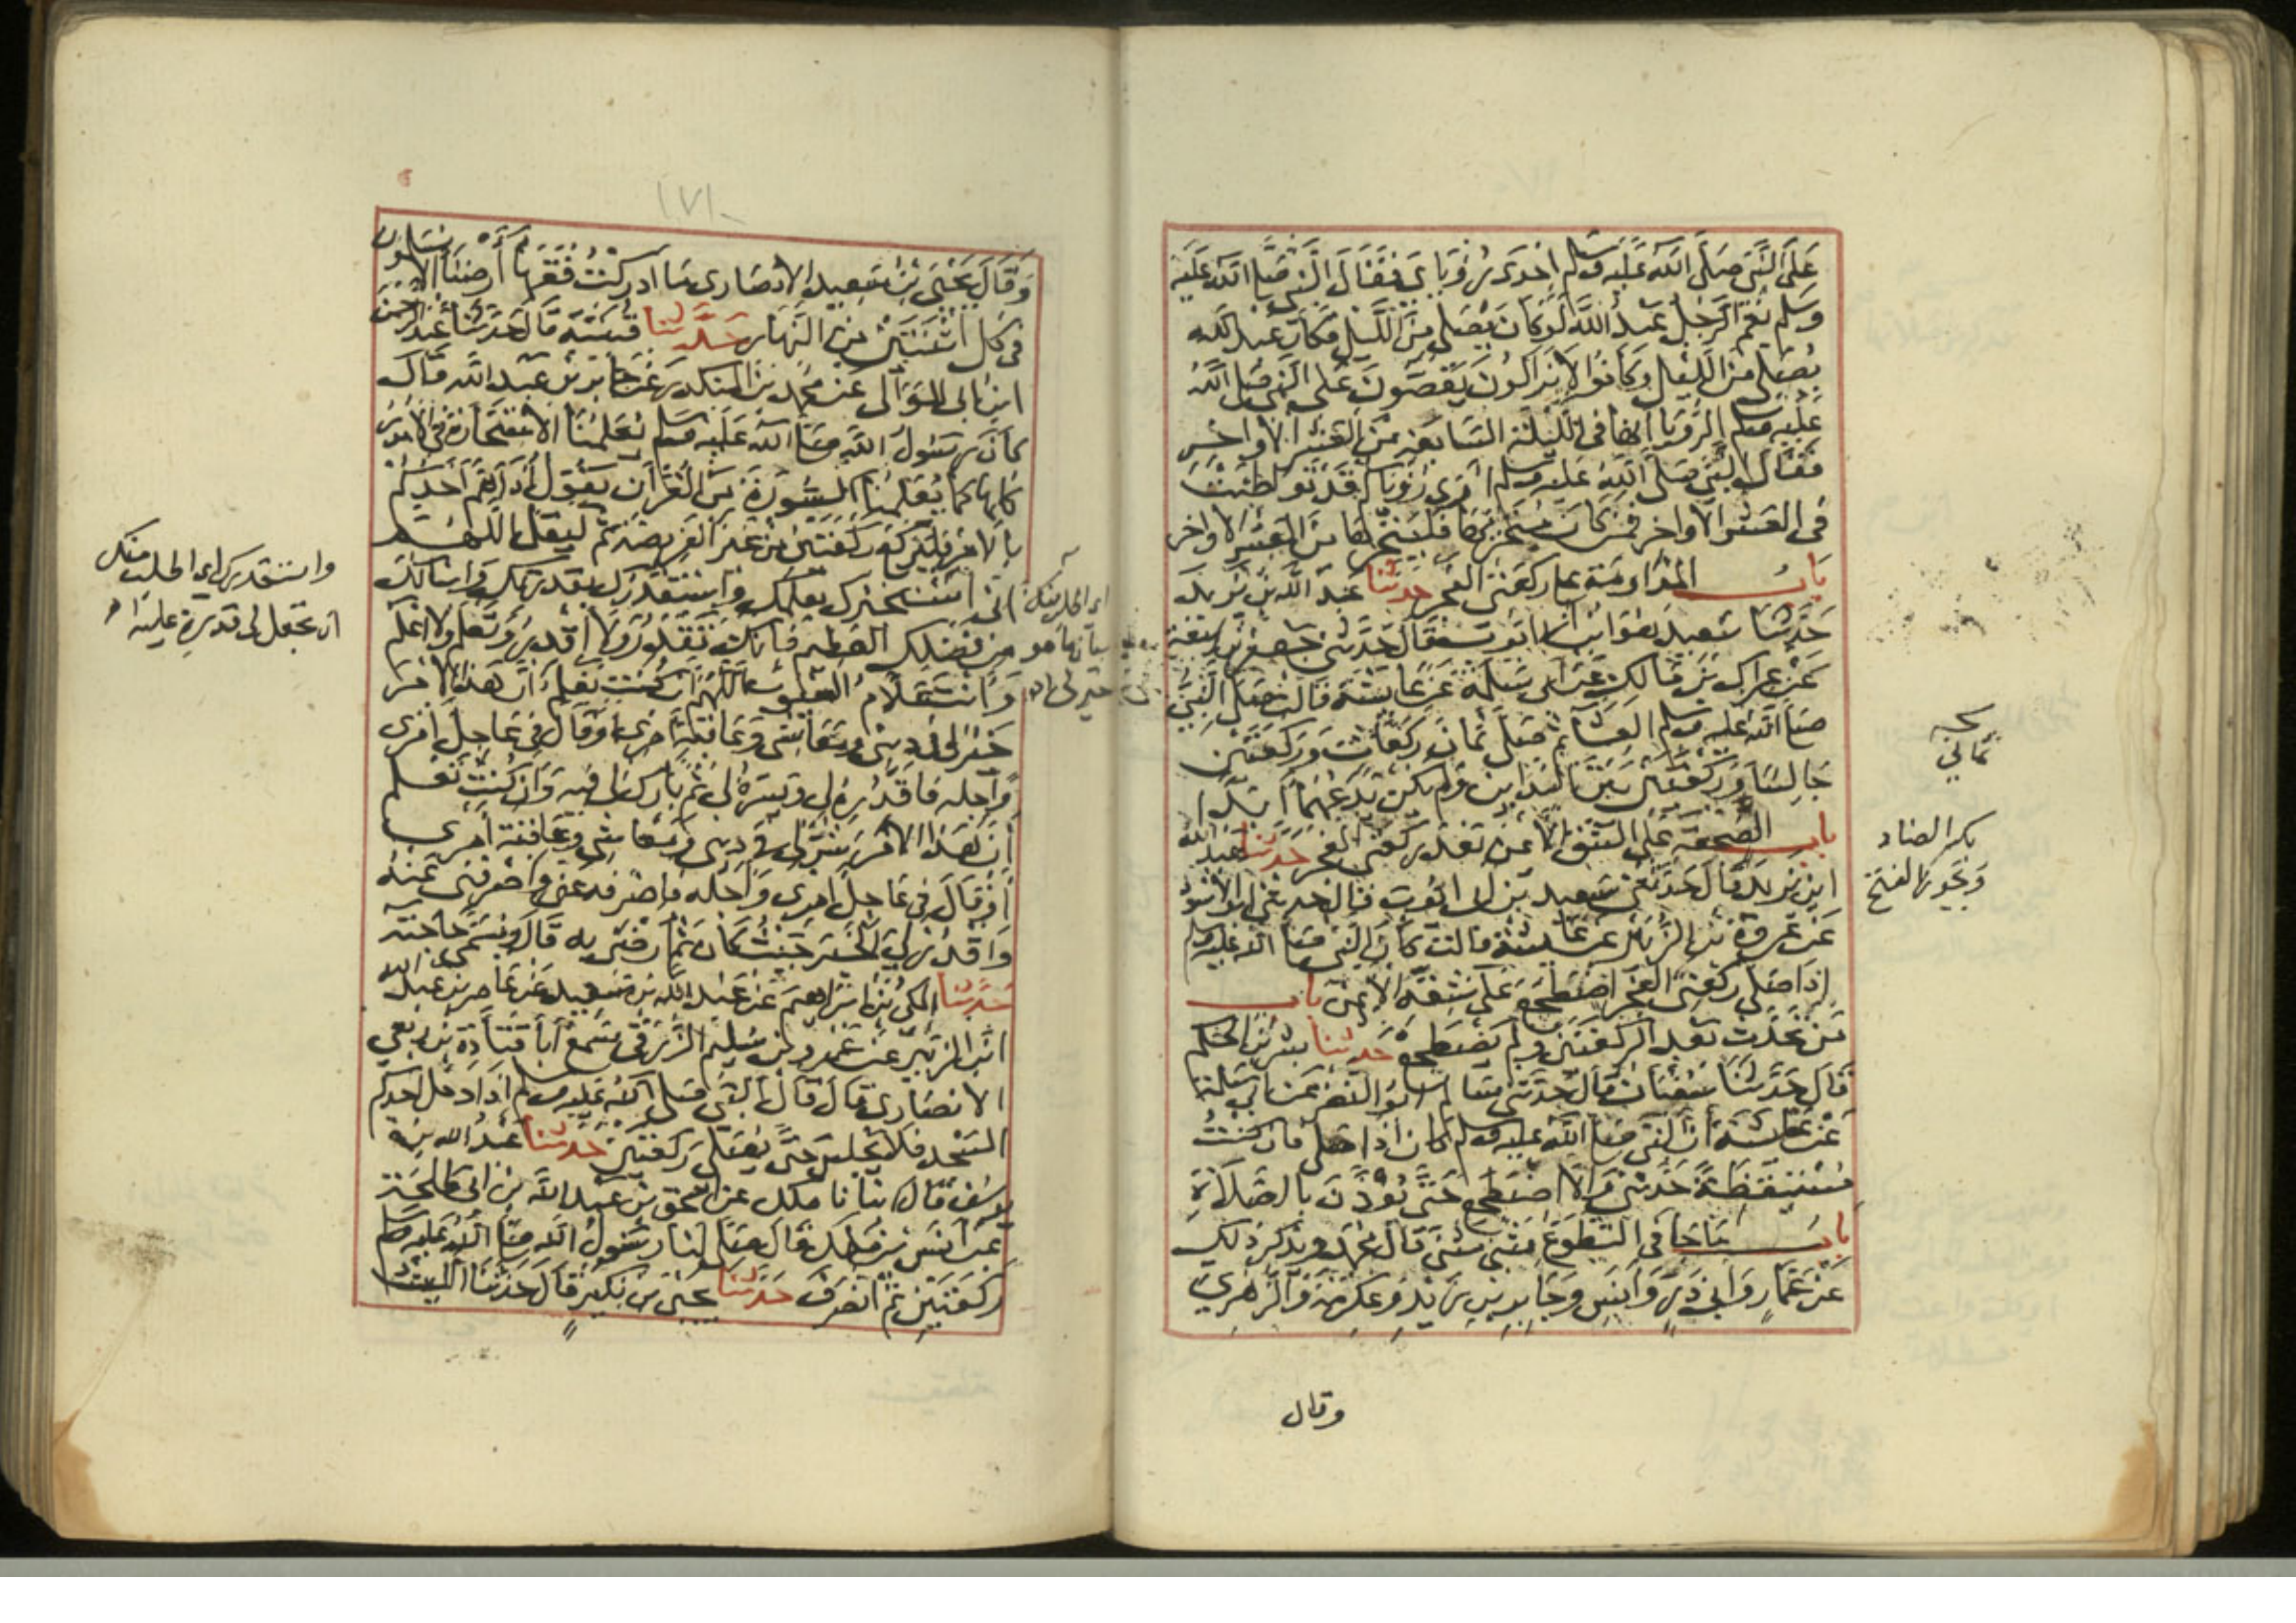 على النبي صلى الله عليه وسلم احدى رؤياي فقال النبي صلى الله عليه
وسلم نعم الرجل عبد الله لو كان يصلي من الليل وكان عبد الله
يصلي من الليل وكانوا لا يزالون يقصون على النبي صلى الله
عليه وسلم الرؤيا انها في الليلة السابعة من العشر الاواخر
فقال النبي صلى الله عليه وسلم ارى رؤياكم قد تواطئت
في العشر الاواخر فمن كان متحريها فليتحرها من العشر الاواخر
باب المداومة على ركعتي الفجر حدثنا عبد الله بن يزيد
حدثنا سعيد هو ابن ابي ايوب قال حدثني جعفر بن ربيعة
عن عراك بن مالك عن ابي سلمة عن عايشة قالت صلى النبي
صلى الله عليه وسلم العشا ثم صلى ثمان ركعات وركعتين
جالسا وركعتين بين الندائين ولم يكن يدعهما ابدا
باب الضجعة على الشق الايمن بعد ركعتي الفجر حدثنا عبد الله
ابن يزيد قال حدثنى سعيد بن ابى ايوب قال حدثني ابو الاسود
عن عروة بن الزبير عن عايشة قالت كان النبي صلى الله عليه وسلم
اذا صلى ركعتي الفجر اضطجع على شقه الايمن باب
من تحدث بعد الركعتين ولم يضطجع حدثنا بشر بن الحكم
قال حدثنا سفيان قال حدثني سالم ابو النضر عن ابي سلمة
عن عايشة ان النبي صلى الله عليه وسلم كان اذا صلى فان كنت
مستيقظة حدثني والا اضطجع حتى يؤذن بالصلاة
باب ما جا في التطوع مثنى مثنى قال محمد ويذكر ذلك
عن عمار وابي ذر وانس وجابر بن زيد وعكرمة والزهري
بكسر الضاد
ويجوز الفتح
وقال
١٧١
وقال يحيى بن سعيد الانصاري ما ادركت فقها ارضنا الا يسلمون
في كل اثنتين من النهار حدثنا قتيبة قال حدثنا عبد الرحمن
ابن ابي الموالي عن محمد بن المنكدر عن جابر بن عبد الله قال
كان رسول الله صلى الله عليه وسلم يعلمنا الاستخارة في الامور
كلها كما يعلمنا السورة من القرآن يقول اذا هم احدكم
بالامر فليركع ركعتين من غير الفريضة ثم ليقل اللهم
اني استخيرك بعلمك واستقدرك بقدرتك واسالك
من فضلك العظيم فانك تقدر ولا اقدر وتعلم ولا اعلم
وانت علام الغيوب اللهم ان كنت تعلم ان هذا الامر
خير لي في ديني ومعاشي وعاقبة امري او قال في عاجل امري
واجله فاقدره لي ويسره لي ثم بارك لي فيه وان كنت تعلم
ان هذا الامر شر لي في ديني ومعاشي وعاقبة امري
او قال في عاجل امري واجله فاصرفه عني واصرفني عنه
واقدر لي الخير حيث كان ثم ارضني به قال ويسمي حاجته
حدثنا المكي بن ابراهيم عن عبد الله بن سعيد عن عامر بن عبد الله
ابن الزبير عن عمرو بن سليم الزرقي سمع ابا قتادة بن ربعي
الانصاري قال قال النبي صلى الله عليه وسلم اذا دخل احدكم
المسجد فلا يجلس حتى يصلي ركعتين حدثنا عبد الله بن
يوسف قال انبانا ملك عن اسحق بن عبد الله بن ابي طلحة
عن انس بن ملك قال صلى لنا رسول الله صلى الله عليه وسلم
ركعتين ثم انصرف حدثنا يحيى بن بكير قال حدثنا الليث
واستقدرك اي اطلب منك
ان تجعل لي قدرة عليه